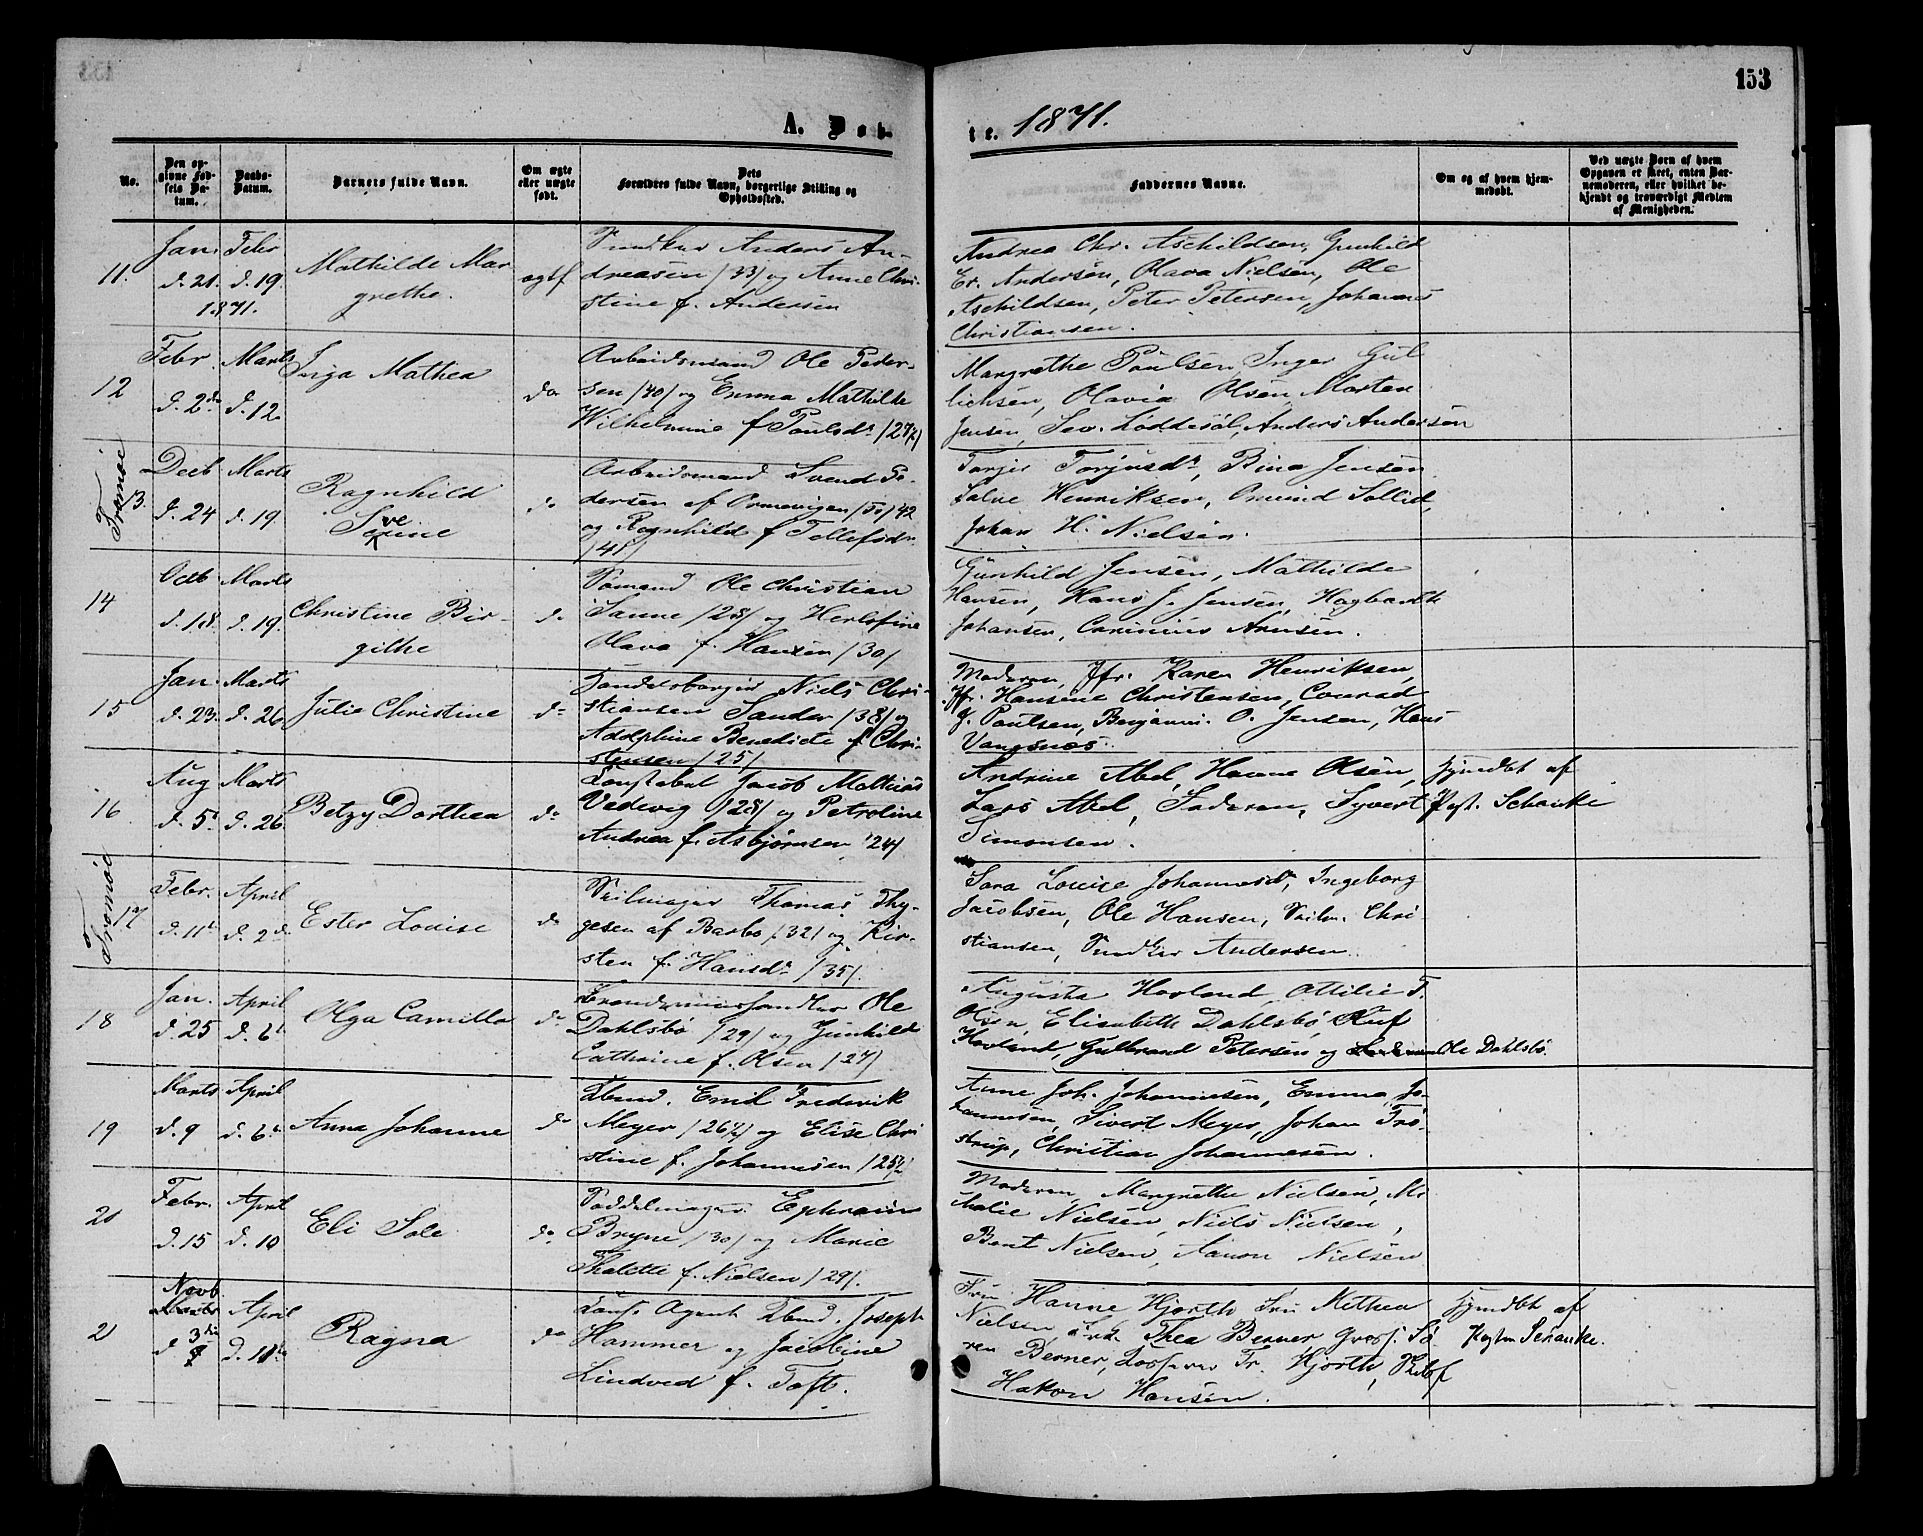 153
A. Døb-
te. 1871.
No.
Den op-
givne Fød-
sels Da-
tum.
Daabs-
Datum.
Barnets fulde Navn.
Om ægte
eller uægte
født.
Dets
Forældres fulde Navn, borgerlige Stilling og
Opholdssted.
Faddernes Navne.
Om og af hvem hjem-
medøbt.
Ved uægte Børn af hvem
Opgaven er skeet, enten Bar-
nemoderen, eller hvilket be-
kjendt og troværdigt Medlem
af Menigheden.
11.
Jan.
d. 21.
1871.
Febr
d. 19.
Mathilde Mar
grethe.
Anders An-
dreasen /33/ og Anne Chri-
stine f. Andersen
Andrea Chr. Aschildsen, Gunhild
Er. Andersen, Olava Nielsen, Ole
Aschildsen, Peter Petersen, Johannes
Christiansen.
12
Febr.
d. 2de
Marts
d. 12.
Inga Mathea
do
Arbeidsmand Ole Peder-
sen /40/ og Emma Mathilde
Wilhelmine f Poulsdr /27½/
Margrethe Poulsen, Inger Gul
lichsen, Olavia Olsen, Morten
Jensen, Sev. Løddesøl, Anders Andersen
Tromøe
13.
Decb
d. 24
Marts
d. 19.
Ragnhild
ve
Do
Arbeidsmand Svend Pe-
dersen af Ormevigen /50/ 42
og Ragnhild f Tellefsdr
/41/
Torjusdr, Bina Jensen
Salve Henriksen, Omund Sollid,
Johan H. Nielsen.
14
d. 18.
Marts
d. 19.
Christine Bir-
githe
do
Sømand Ole Christian
Sanne /28/ og
Olava f. Hansen /30/
Gunhild Jensen, Mathilde
Hansen, Hans J. Jensen, Hagbarth
Johansen, Carinius Arnsen.
15
Jan.
d. 23.
Marts
d. 26
Julie Christine
do
Handelsborger Niels Chri-
stiansen Sander /38/ og
Adolphine Benedicte f Chri-
stensen /25/
Moderen, Jfr. Karen Henriksen,
Jfr. Hansine Christensen, Conrad
J. Poulsen, Benjamin O. Jensen, Hans
Vangsnes.
16
Aug
d. 5.
Marts
d. 26
Betzy Dorthea
do
Constabel Jacob Mathias
Vedevig /28/ og Petroline
Andrea f. Asbjørnsen /24/
Andrine Abel, Hanne Olsen,
Lars Abel, Faderen, Syvert
Simonsen.
hjemdbt af
Past. Schanke
Tromøe
17
Febr.
d. 11
April
d. 2d
Ester Louise
do
Seilmager Thomas Thy-
gesen af Barbo /32/ og Kir-
sten f. Hansdr /35/.
Sara Louise Johannesdr, Ingeborg
Jacobsen, Ole Hansen, Seilm. Chri-
stiansen, Andersen.
18
Jan.
d. 25
April
d. 6
Olga Camilla
do
Ole
Dahlsbø /29/ og Gunhild
Cathrine f. Olsen /27/
Augusta Hovland, Ottilie T.
Olsen, Elisabeth Dahlsbø,
Hovland, Gulbrand Petersen og Ole Dahlsbø.
19
Marts
d. 9
April
d. 6
Anna Johanne
do
Emil Frederik
Meyer /26½/ og Elise Chri
stine f. Johannesen /25½
Anne Joh. Johannesen, Emma Jo-
hannesen, Sivert Meyer, Johan Trø-
strup, Christian Johannesen.
20
Febr.
d. 15
April
d. 10
Eli Sole
do
Saddelmager Ephraim
Bryne /30/ og Marie
Thalette f. Nielsen /29/.
Moderen, Margrethe Nielsen,
Nielsen, Niels Nielsen,
Bent Nielsen, Aanon Nielsen
21
Novb
d
April
d. 10
Ragna
do
Agent Joseph
Hammer og Jacobine
Lindved f. Toft.
Fru Hanne Hjorth, Fru Methea
Nielsen, Thea Berner, Gross. Sø
ren Berner, Fr. Hjorth,
Hakon Hansen.
hjemdbt af
Schanke.